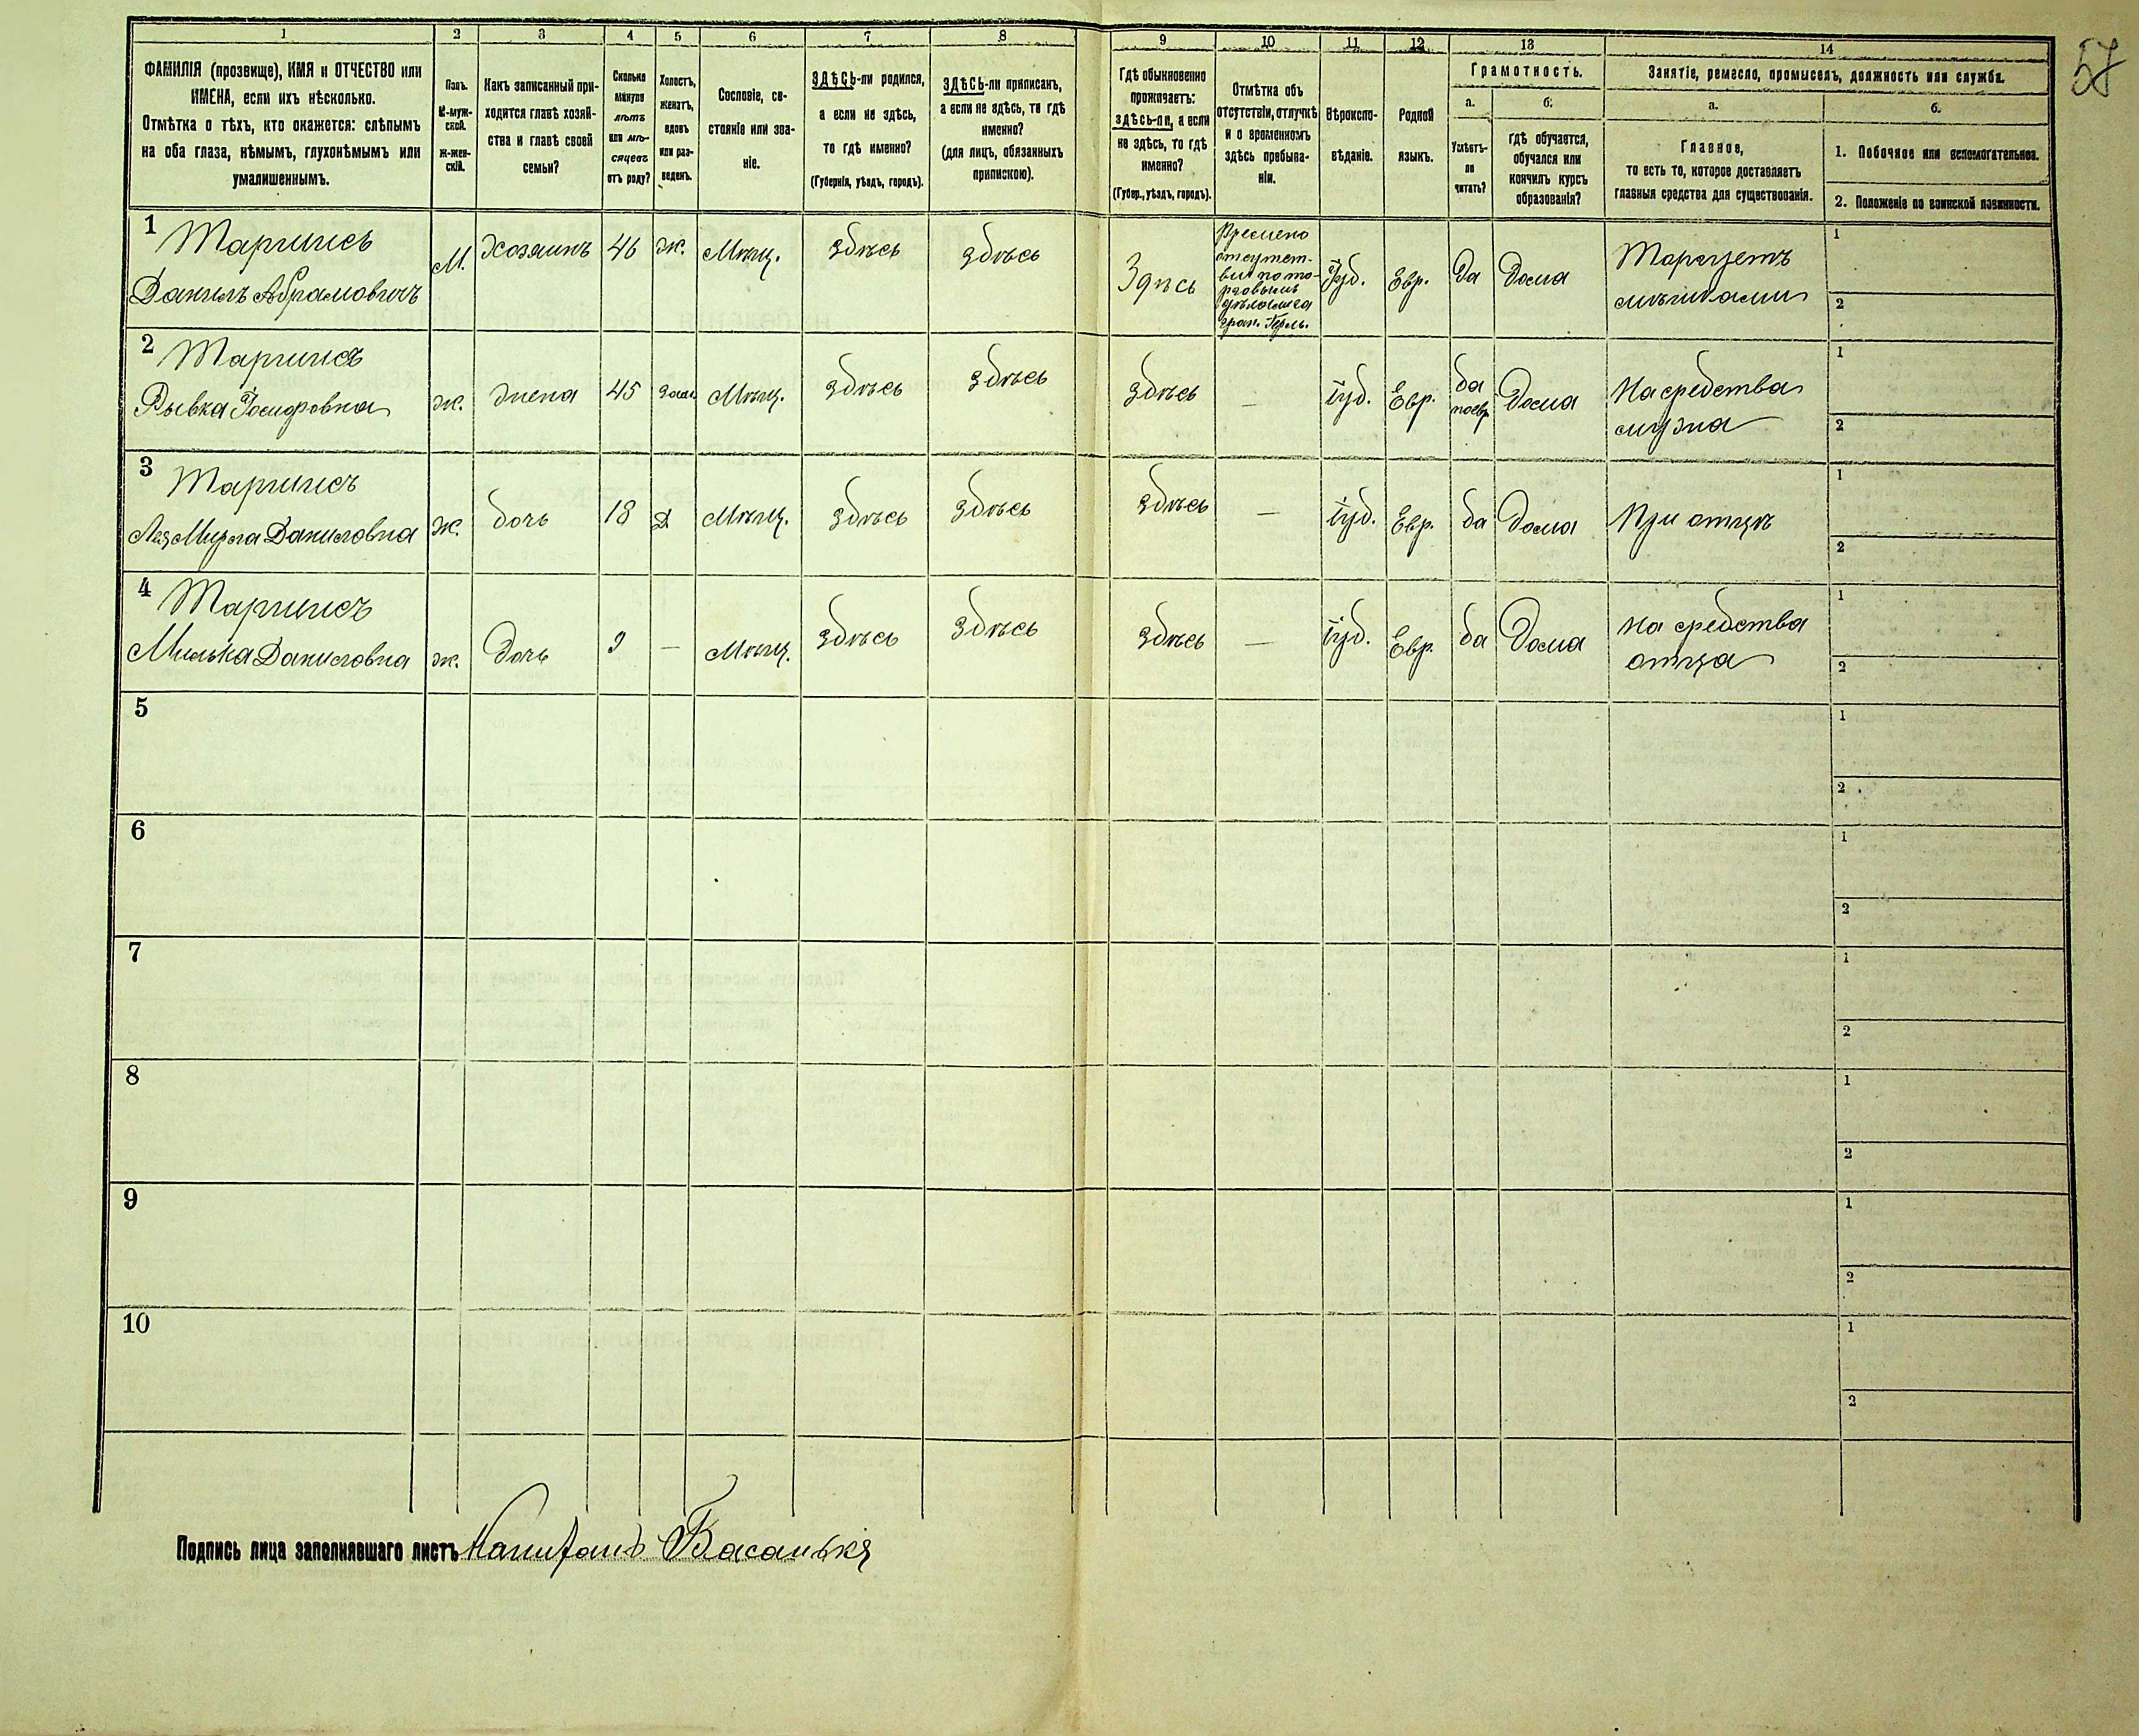 57
1 2 3 4 5 6 7 8 9 10 11 12 13 14
ФАМИЛІЯ (прозвище), ИМЯ и ОТЧЕСТВО или
ИМЕНА, если ихъ нѣсколько.
Отмѣтка о тѣхъ, кто окажется: слѣпымъ
на оба глаза, нѣмымъ, глухонѣмымъ или
умалишеннымъ.
Полъ.
М-муж-
ской.
Ж-жен-
скій.
Какъ записанный при-
ходится главѣ хозяй-
ства и главѣ своей
семьи?
Сколько
минуло
лѣтъ
или мѣ-
сяцевъ
отъ роду?
Холостъ,
женатъ,
вдовъ
или раз-
веденъ.
Сословіе, со-
стояніе или зва-
ніе.
ЗДѢСЬ-ли родился,
а если не здѣсь,
то гдѣ именно?
(Губернія, уѣздъ, городъ).
ЗДѢСЬ-ли приписанъ,
а если не здѣсь, то гдѣ
именно?
(для лицъ, обязанныхъ
припискою).
Гдѣ обыкновенно
проживаетъ:
здѣсь-ли, а если
не здѣсь, то гдѣ
именно?
(Губер., уѣздъ, городъ).
Отмѣтка объ
отсутствіи, отлучкѣ
и о временномъ
здѣсь пребыва-
ніи.
Вѣроиспо-
вѣданіе.
Родной
языкъ.
Грамотность.
а.
Умѣетъ-
ли
читать?
б.
гдѣ обучается,
обучался или
кончилъ курсъ
образованія?
Занятіе, ремесло, промыселъ, должность или служба.
а.
Главное,
то есть то, которое доставляетъ
главныя средства для существованія.
б.
1. Побочное или вспомогательное.
2. Положеніе по воинской повинности.
1 Маргулисъ
Данилъ Абрамовичъ
М.
Хозяинъ
46
Ж.
Мѣщ.
здѣсь
здѣсь
Здѣсь
Времено
отсутст-
вит по то-
рговымъ
дѣламъ за
Іуд.
Евр.
Да
Дома
Торгуетъ
1
2
2 Маргулисъ
Рывка Іосифовна
ж.
жена
45
Зам.
Мѣщ.
здѣсь
здѣсь
здѣсь
—
іуд.
Евр.
да
поевр
Дома
На средства
мужа
1
2
3 Маргулисъ
Лея Мирла Даниловна
ж.
дочь
18
Д
Мѣщ.
здѣсь
здѣсь
здѣсь
—
іуд.
Евр.
да
Дома
При отцѣ
1
2
4 Маргулисъ
Милька Даниловна
ж.
Дочь
9
—
Мѣщ.
здѣсь
здѣсь
здѣсь
—
іуд.
Евр.
да
Дома
На средства
отца
1
2
5
1
2
6
1
2
7
1
2
8
1
2
9
1
2
10
1
2
Подпись лица заполнявшаго листъ